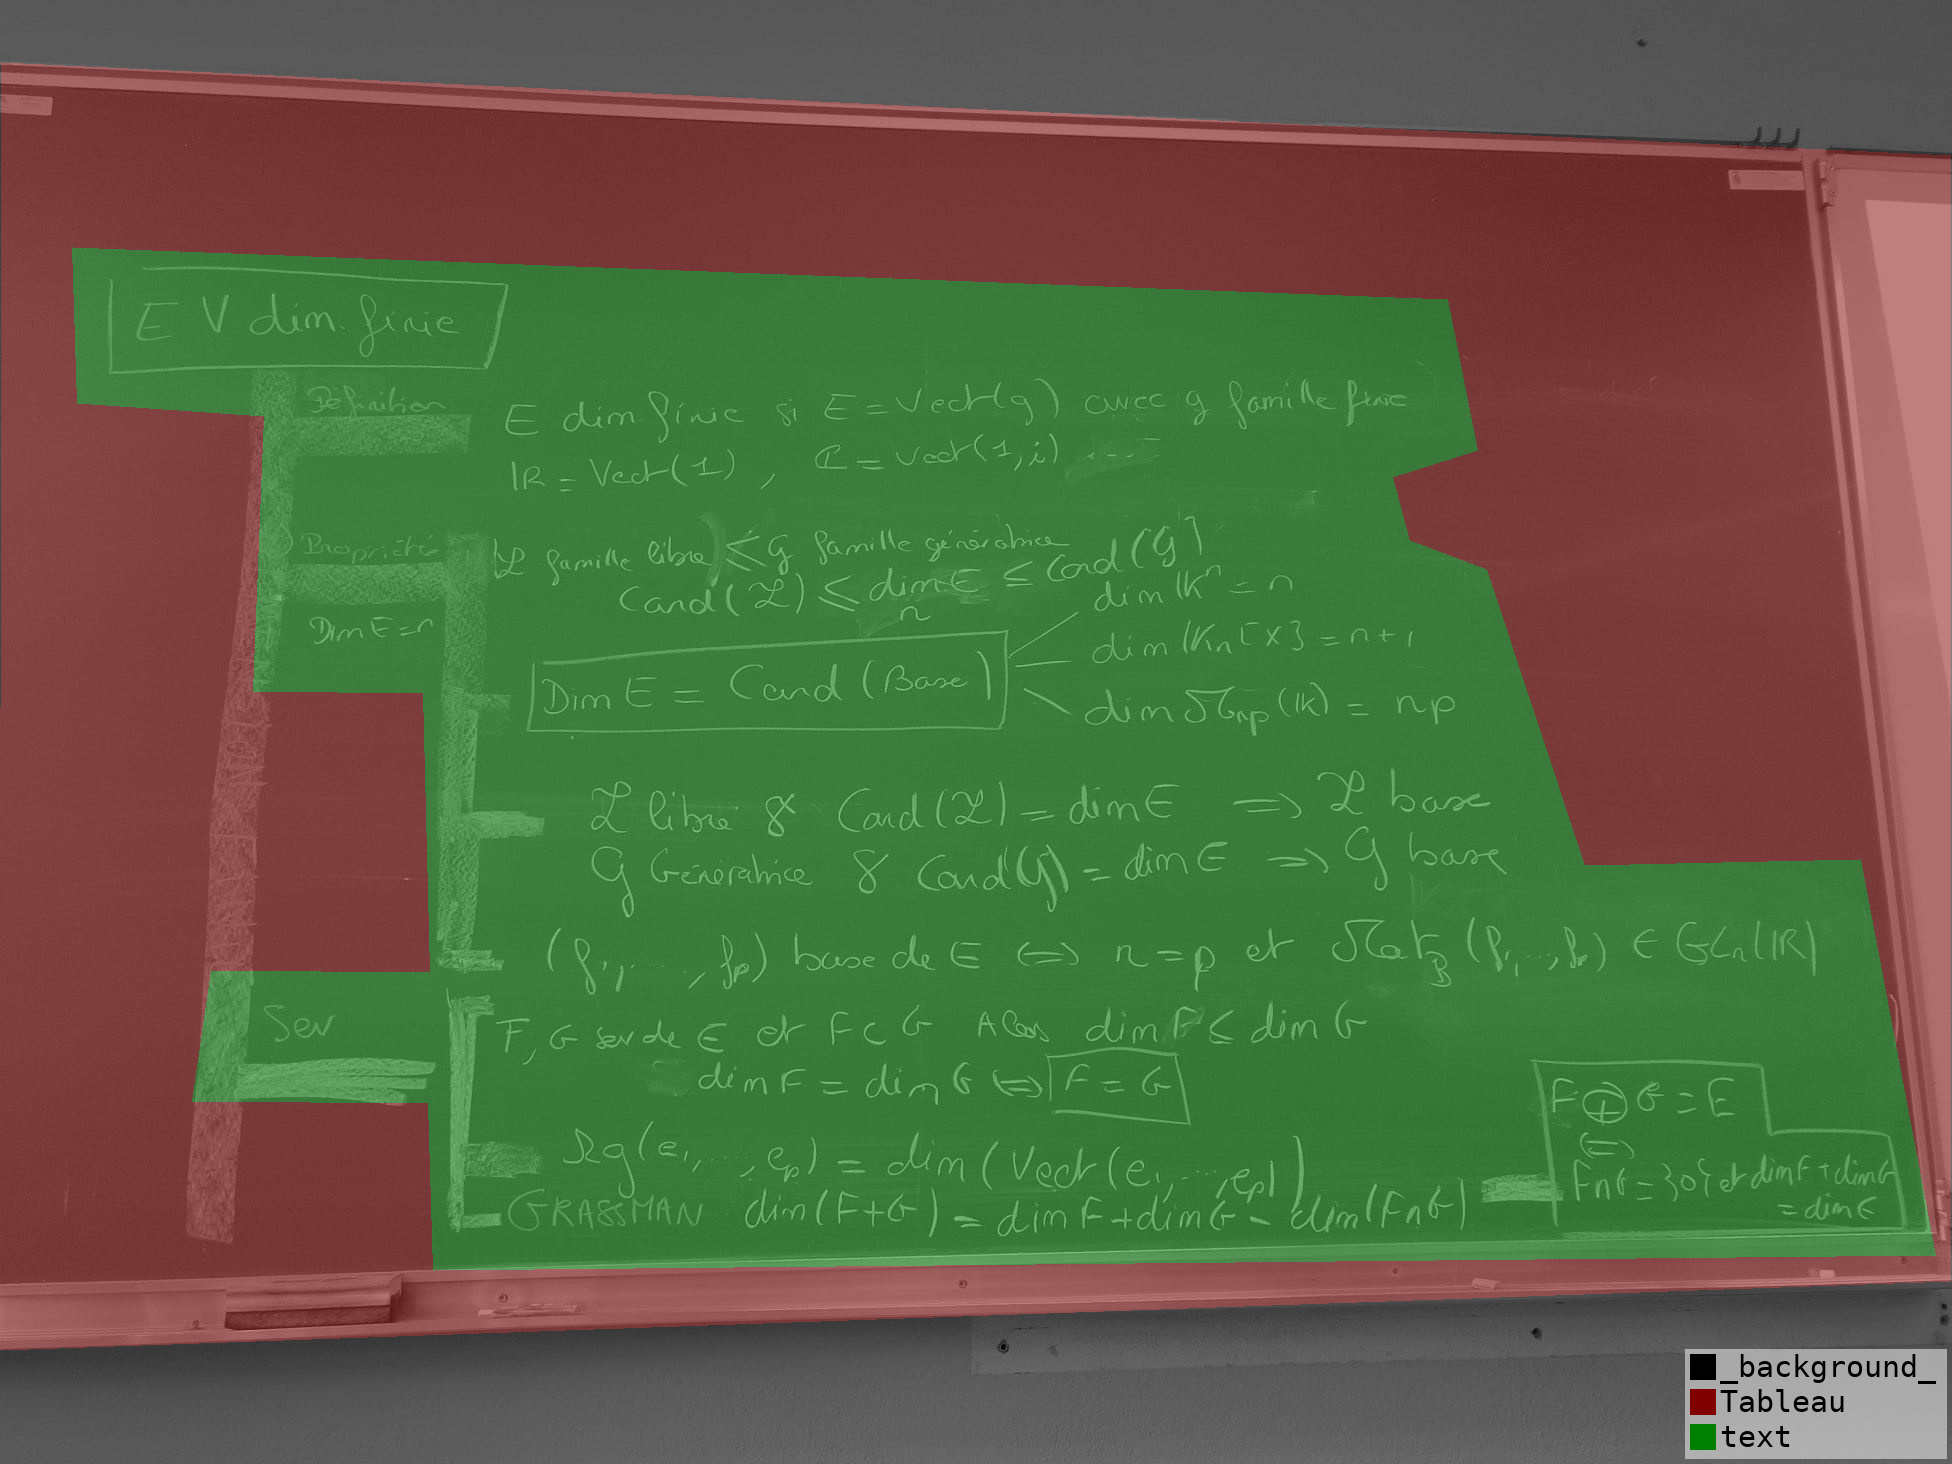 E V dim. finie
Définition
E dim. finie si E = Vect(g) avec g famille finie
IR = Vect(1) , ℂ = Vect(1,i)
Propriété
ℒ famille libre ≤ G famille génératrice
Card(ℒ) ≤ dim E ≤ Card(G)
n
Dim E = n
dim IKⁿ = n
dim IKn[X] = n+1
Dim E = Card (Base)
dim ℳnp(IK) = np
ℒ libre & Card(ℒ) = dim E => ℒ base
G Génératrice & Card(G) = dim E => G base
(f1, ...., fp) base de E <=> n = p et MatB (f1,...,fp) ∈ GLn(IR)
Sev
F, G sev de E et F⊂G Alors dim F ≤ dim G
dim F = dim G <=> F = G
F ⊕ G = E
<=>
Rg(e1, ...., ep) = dim(Vect(e1, ...., ep))
F∩G = {0} et dim F + dim G
= dim E
GRASSMAN dim(F+G) = dim F + dim G - dim(F∩G)
_background_
Tableau
text